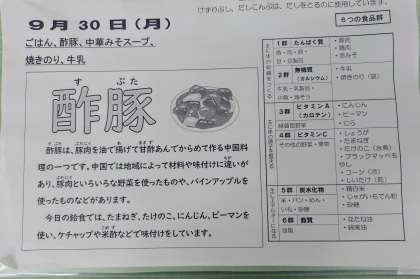 けずりぶし、だしこんぶは、だしをとるのに使用しています。
9月30日(月)
ごはん、酢豚、中華みそスープ、
焼きのり、牛乳
6つの食品群
すぶた
酢豚
酢豚は、豚肉を油で揚げて甘酢あんでからめて作る中国料
理の一つです。中国では地域によって材料や味付けに違いが
あり、豚肉といろいろな野菜を使ったものや、パインアップルを
使ったものなどがあります。
今日の給食では、たまねぎ、たけのこ、にんじん、ピーマンを
使い、ケチャップや米酢などで味付をしています。
1群 たんぱく質
・豚肉
・鶏肉
・赤みそ
2群 無機質
(カルシウム)
・牛乳
・焼きのり
3群 ビタミンA
(カロテン)
緑黄色野菜
・にんじん
・ピーマン
・にら
4群 ビタミンC
・しょうが
・たまねぎ
・たけのこ(水煮)
・ブラックマッペも
やし
・コーン(冷)
・しいたけ(乾)
5群 炭水化物
米・パン・めん・
いも・砂糖
・精白米
・じゃがいもでん粉
・砂糖
6群 脂質
油脂
・なたね油
・綿実油